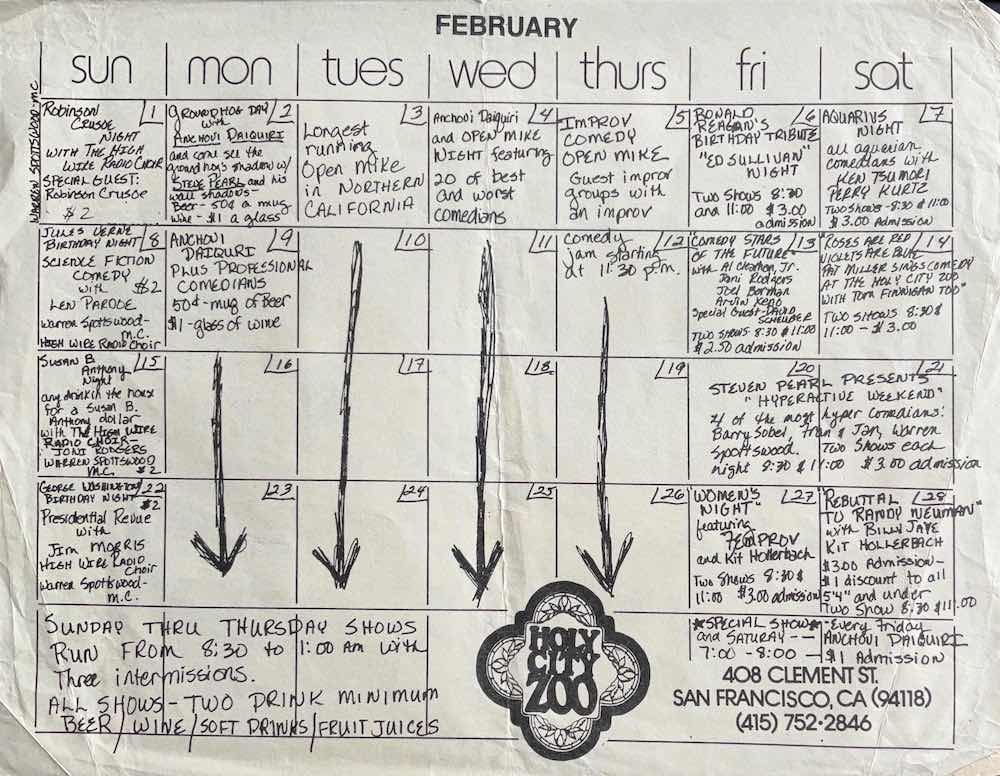 FEBRUARY
sun mon tues wed thurs fri sat
WARREN SPOTTSWOOD - MC
1
Robinson
Crusoe
NIGHT
WITH THE HIGH
WIRE RADIO CHOIR
SPECIAL GUEST:
Robinson Crusoe
$2
2
GROUND HOG DAY
with
ANCHOVI DAIQUIRI
and come see the
groundhog's shadow w/
STEVE PEARL and his
wall shadows-
Beer - 50¢ a mug
wine - $1 a glass
3
Longest
running
Open Mike
in NORTHERN
CALIFORNIA
4
Anchovi Daiquiri
and OPEN MIKE
NIGHT featuring
20 of best
and worst
comedians
5
IMPROV
COMEDY
OPEN MIKE
Guest improv
groups with
an improv
6
RONALD
REAGAN'S
BIRTHDAY TRIBUTE
"ED SULLIVAN"
Two Shows 8:30
and 11:00 $3.00
admission
7
AQUARIUS
NIGHT
all aquarian
comedians with
KEN TSUMORI
PERRY KURTZ
Two shows - 8:30 & 11:00
$3.00 Admission
8
JULES VERNE
BIRTHDAY NIGHT
SCIENCE FICTION
COMEDY
with $2
LEN PARODE
Warren Spottswood-
M.C.
HIGH WIRE RADIO Choir
9
ANCHOVI
DAIQUIRI
PLUS PROFESSIONAL
COMEDIANS
50¢ - mug of Beer
$1 - glass of wine
10
11
12
Comedy
jam starting
at 11:30 p.m.
13
"COMEDY STARS
OF THE FUTURE"
with Al Chathon, Jr.
Joni Rodgers
Joel Borman
Arvin Keno
Special Guest - DAVID
SCHEUBER
Two Shows 8:30 & 11:00
$2.50 admission
14
"ROSES ARE RED
VIOLETS ARE BLUE
PAT MILLER SINGS COMEDY
AT THE HOLY CITY ZOO
WITH TOM FINNIGAN TOO"
TWO SHOWS 8:30 &
11:00 - $3.00
15
SUSAN B
Anthony
Night
any drink in the house
for a Susan B.
Anthony dollar
with THE HIGH WIRE
RADIO CHOIR-
JONI RODGERS
WARREN SPOTTSWOOD
M.C. $2
16
17
18
19
20
21
STEVEN PEARL PRESENTS
"HYPERACTIVE WEEKEND"
4 of the most hyper comedians:
Barry Sobel, Fran & Jan, Warren
Spottswood. Two Shows each
night 8:30 & 11:00 $3.00 admission
22
GEORGE WASHINGTON
BIRTHDAY NIGHT
$2
Presidential Revue
with
JIM MORRIS
HIGH WIRE RADIO
Choir
Warren Spottswood-
M.C.
23
24
25
26
27
"WOMEN'S
NIGHT"
featuring
FEMPROV
and Kit Hollerbach
Two Shows 8:30 &
11:00 $3.00 admission
28
"REBUTTAL
TO RANDY NEUMAN"
with BILLY JAYE
KIT HOLLERBACH
$3.00 Admission-
$1 discount to all
5'4" and under
Two Show 8:30 & 11:00
SUNDAY THRU THURSDAY SHOWS
RUN FROM 8:30 to 1:00 AM with
Three intermissions.
ALL SHOWS - TWO DRINK MINIMUM
BEER/WINE/SOFT DRINKS/FRUIT JUICES
HOLY
CITY
ZOO
*SPECIAL SHOW* - Every Friday
and SATURAY -- ANCHOVI DAIQUIRI
7:00 - 8:00 - $1 Admission
408 CLEMENT ST.
SAN FRANCISCO, CA (94118)
(415) 752•2846